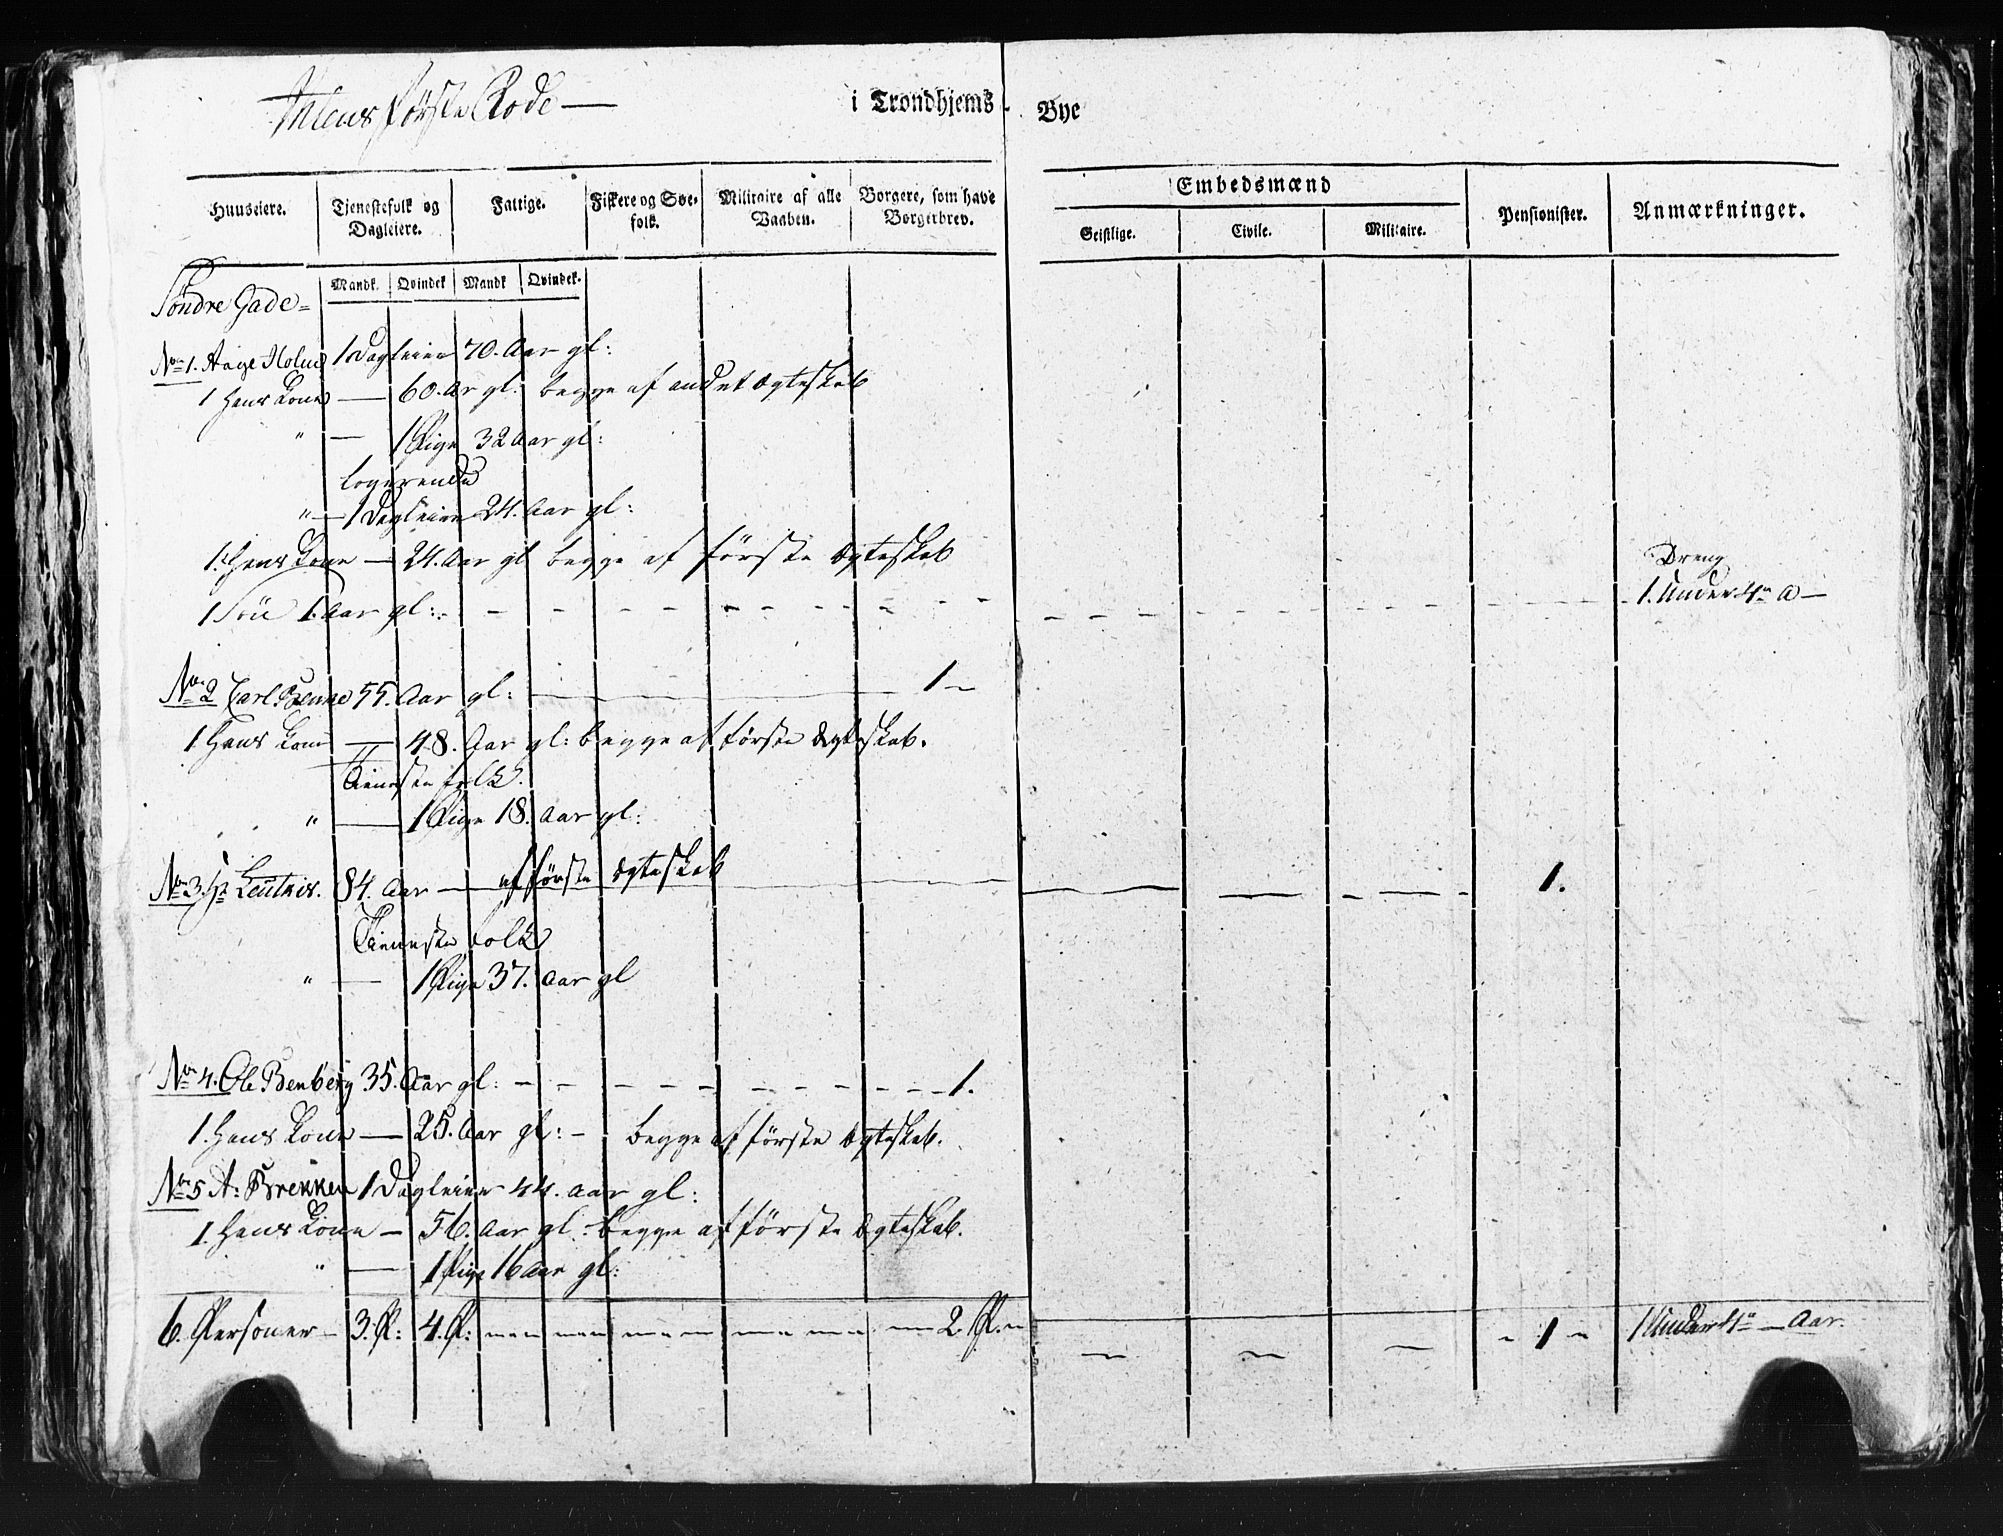 Ihlens første Rode — i Trondhjems Bye
Huuseiere. Tjenestefolk og Dagleiere. Fattige. Fiskere og Søe-folk. Militaire af alle Vaaben. Borgere, som have Borgerbrev. Embedsmænd Geistlige. Civile. Militaire. Pensionister. Anmærkninger.
Mandk. Qvindek Mandk Qvindek.
Søndre Gade =
No 1. Aage Holm 1 Dagleier 70. Aar gl:
1 Hans Kone — 60. Ar gl: begge af andet Ægteskab
" — 1 Pige 32 Aar gl:
Logerende
" — 1 Dagleier 24. Aar gl:
1. Hans Kone — 24. Aar gl begge af første Ægteskab
Dreng
1 Søn 1. Aar gl: - - - - - - - - - 1. Under 4re A —
No 2 Carl 55. Aar gl: — 1 –
1 Hans Kone — 48. Aar gl: begge af første Ægteskab.
Tieneste folk.
" — 1 Pige 18. Aar gl:
No 3. Hr 84. Aar — af første Ægteskab — 1.
Tieneste folk
" — 1 Pige 37. Aar gl
No 4. Ole Benberg 35. Aar gl: - - - - - - - 1.
1. Hans Kone — 25. Aar gl: – begge af første Ægteskab.
No 5 A: Brekken 1 Dagleier 44. Aar gl:
1. Hans Kone — 56. Aar gl: begge af første Ægteskab.
" — 1 Pige 16 Aar gl:
6. Personer — 3. P: 4. P: — 2. P. – 1 – 1 Under 4re — Aar.